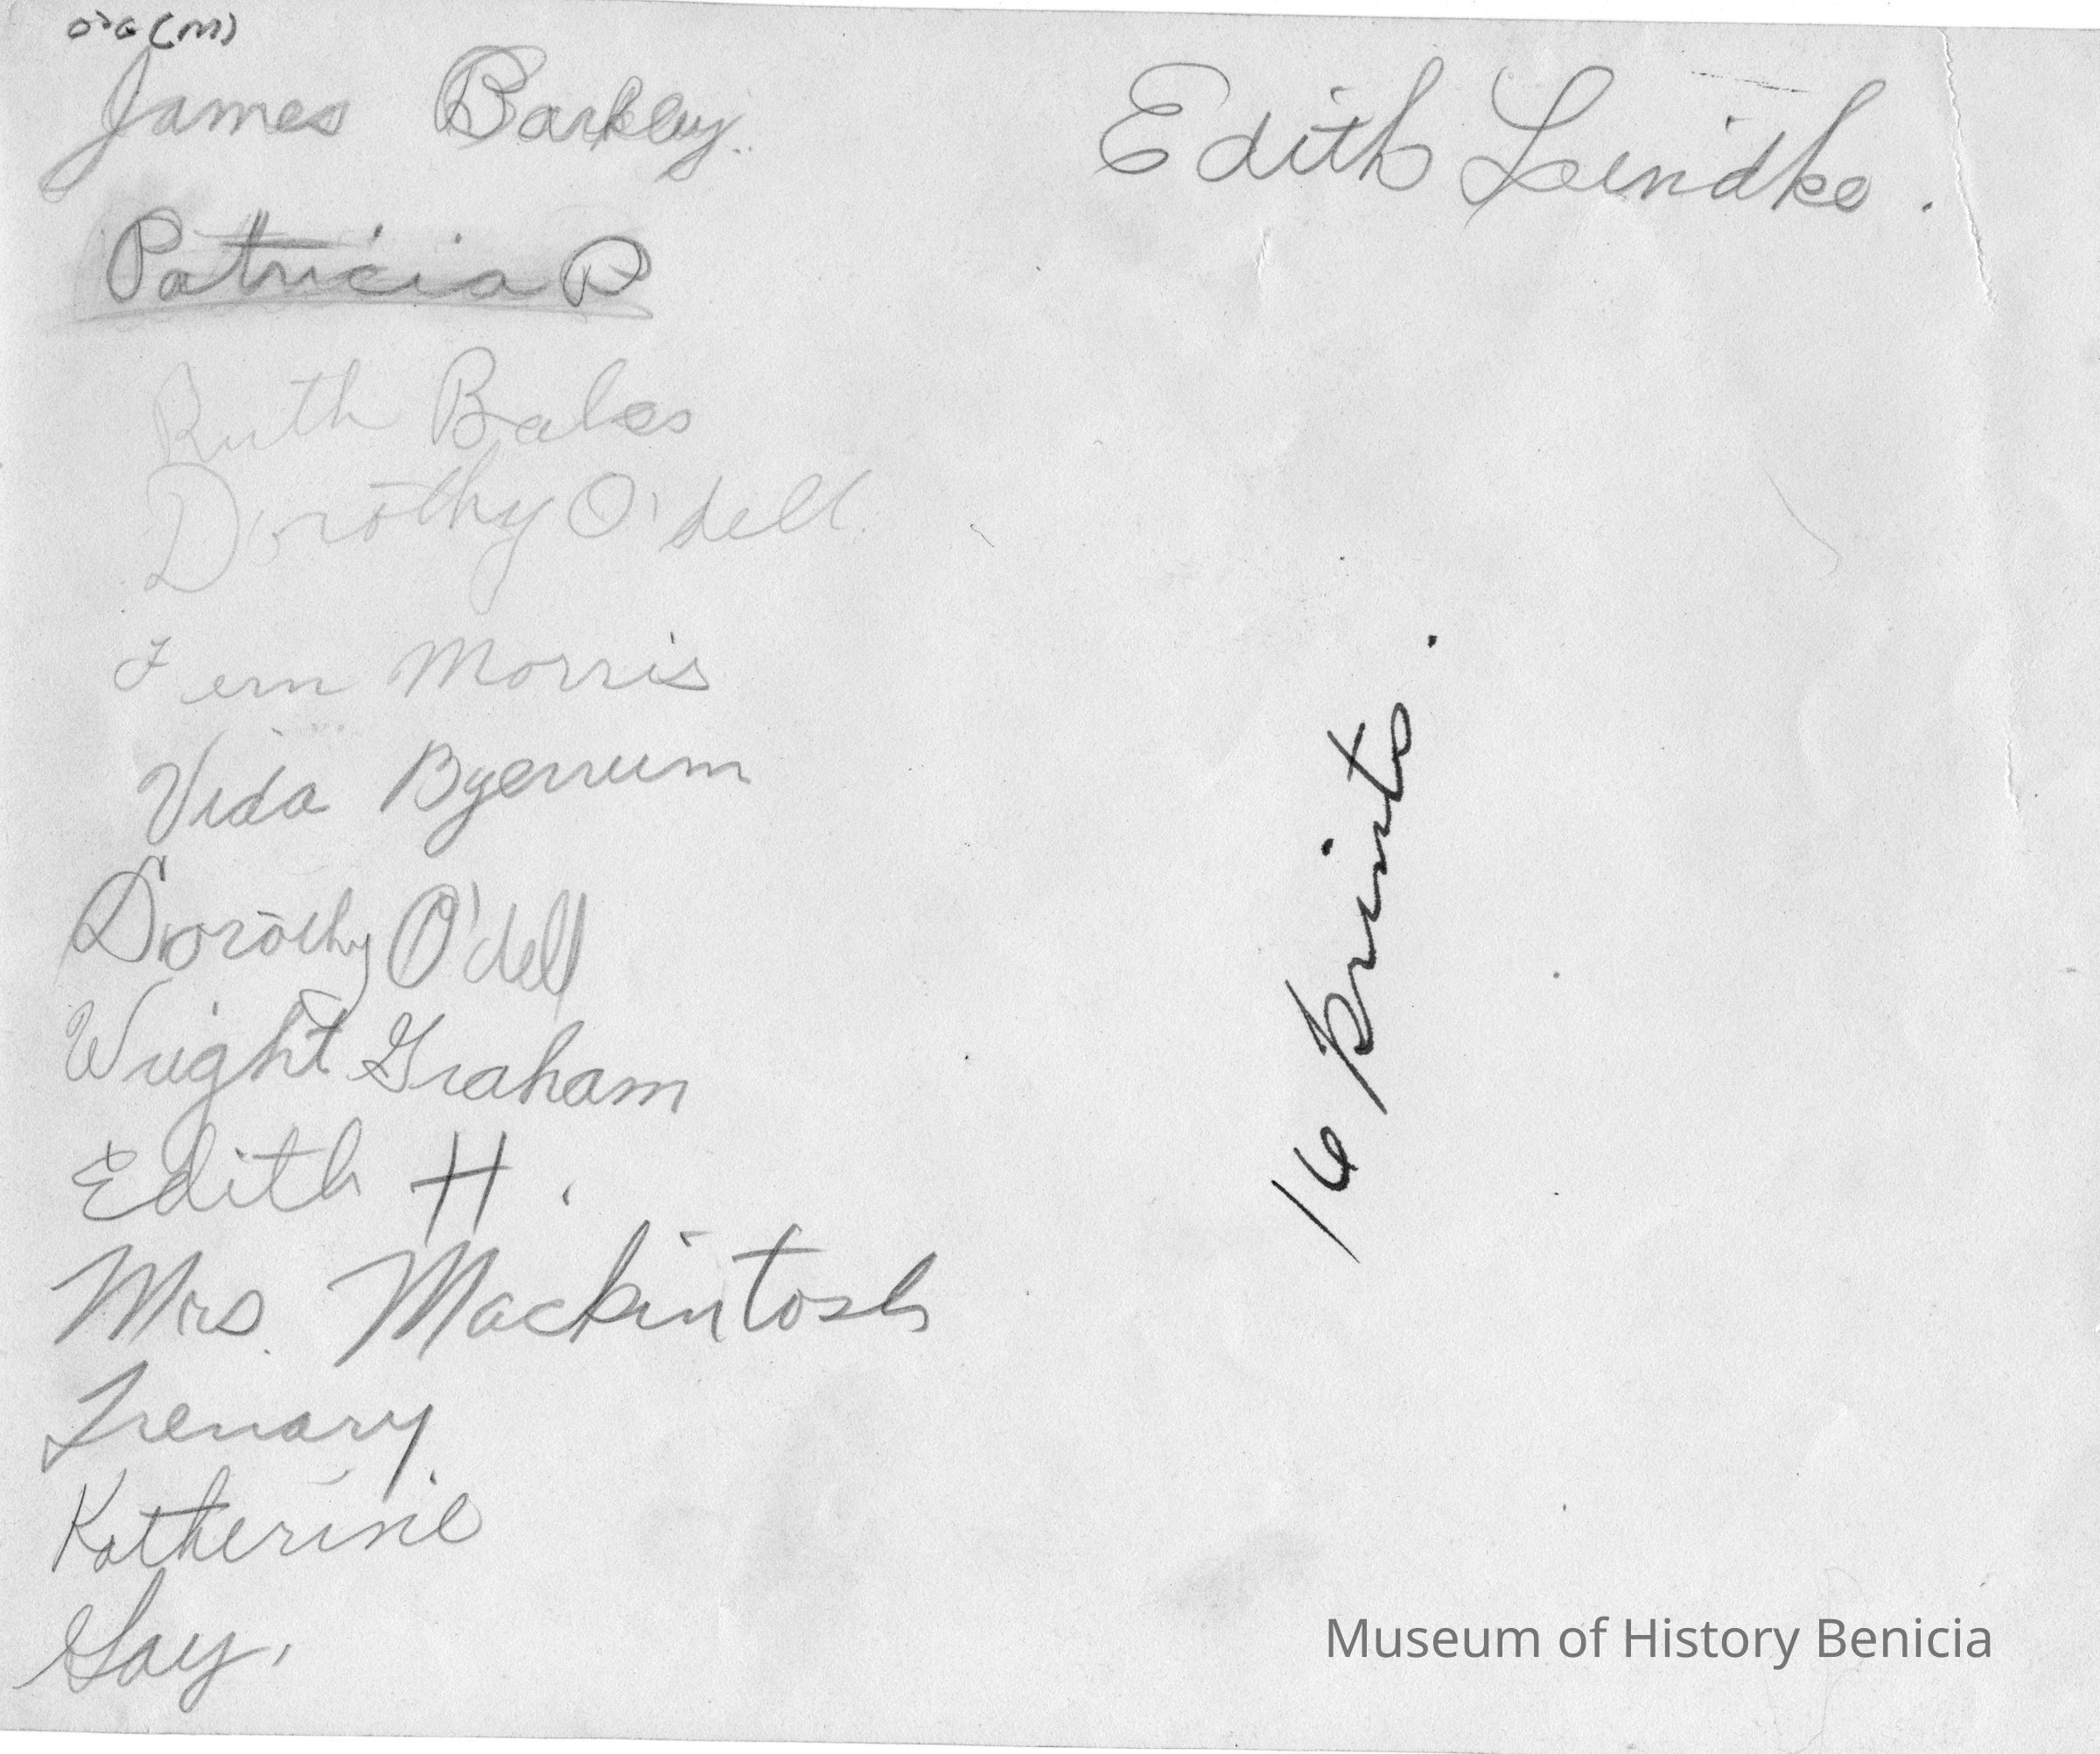 James Barkley..
Patricia P
Ruth Bales
Dorothy O'dell.
Fern Morris
Vida Byerrum
Dorothy O'dell
Wright Graham
Edith H.
Mrs. Mackintosh
Trenary
Katherine
Gay,
Edith
16 prints.
Museum of History Benicia